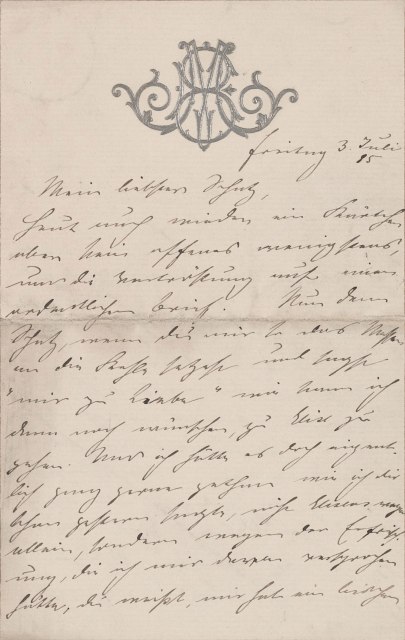 Freitag 3. Juli
15
Mein liebster Schatz,
heut auch wieder ein Kärtchen
aber kein offenes wenigstens,
und die Vertröstung auf einen
ordentlichen Brief. Nun denn
Schatz, wenn du mir so das Messer
an die Kehle setzest und sagst
"mir zu Liebe" wie kann ich
denn noch wünschen, zu Elise zu
gehen. Und ich hätte es doch eigent-
lich ganz gerne gethan, wie ich dir
schon gestern sagte, nicht Elisens wegen
allein, sondern wegen der Erfrisch-
ung, die ich mir davon versprochen
hatte, du weißt, mir hat ein bischen